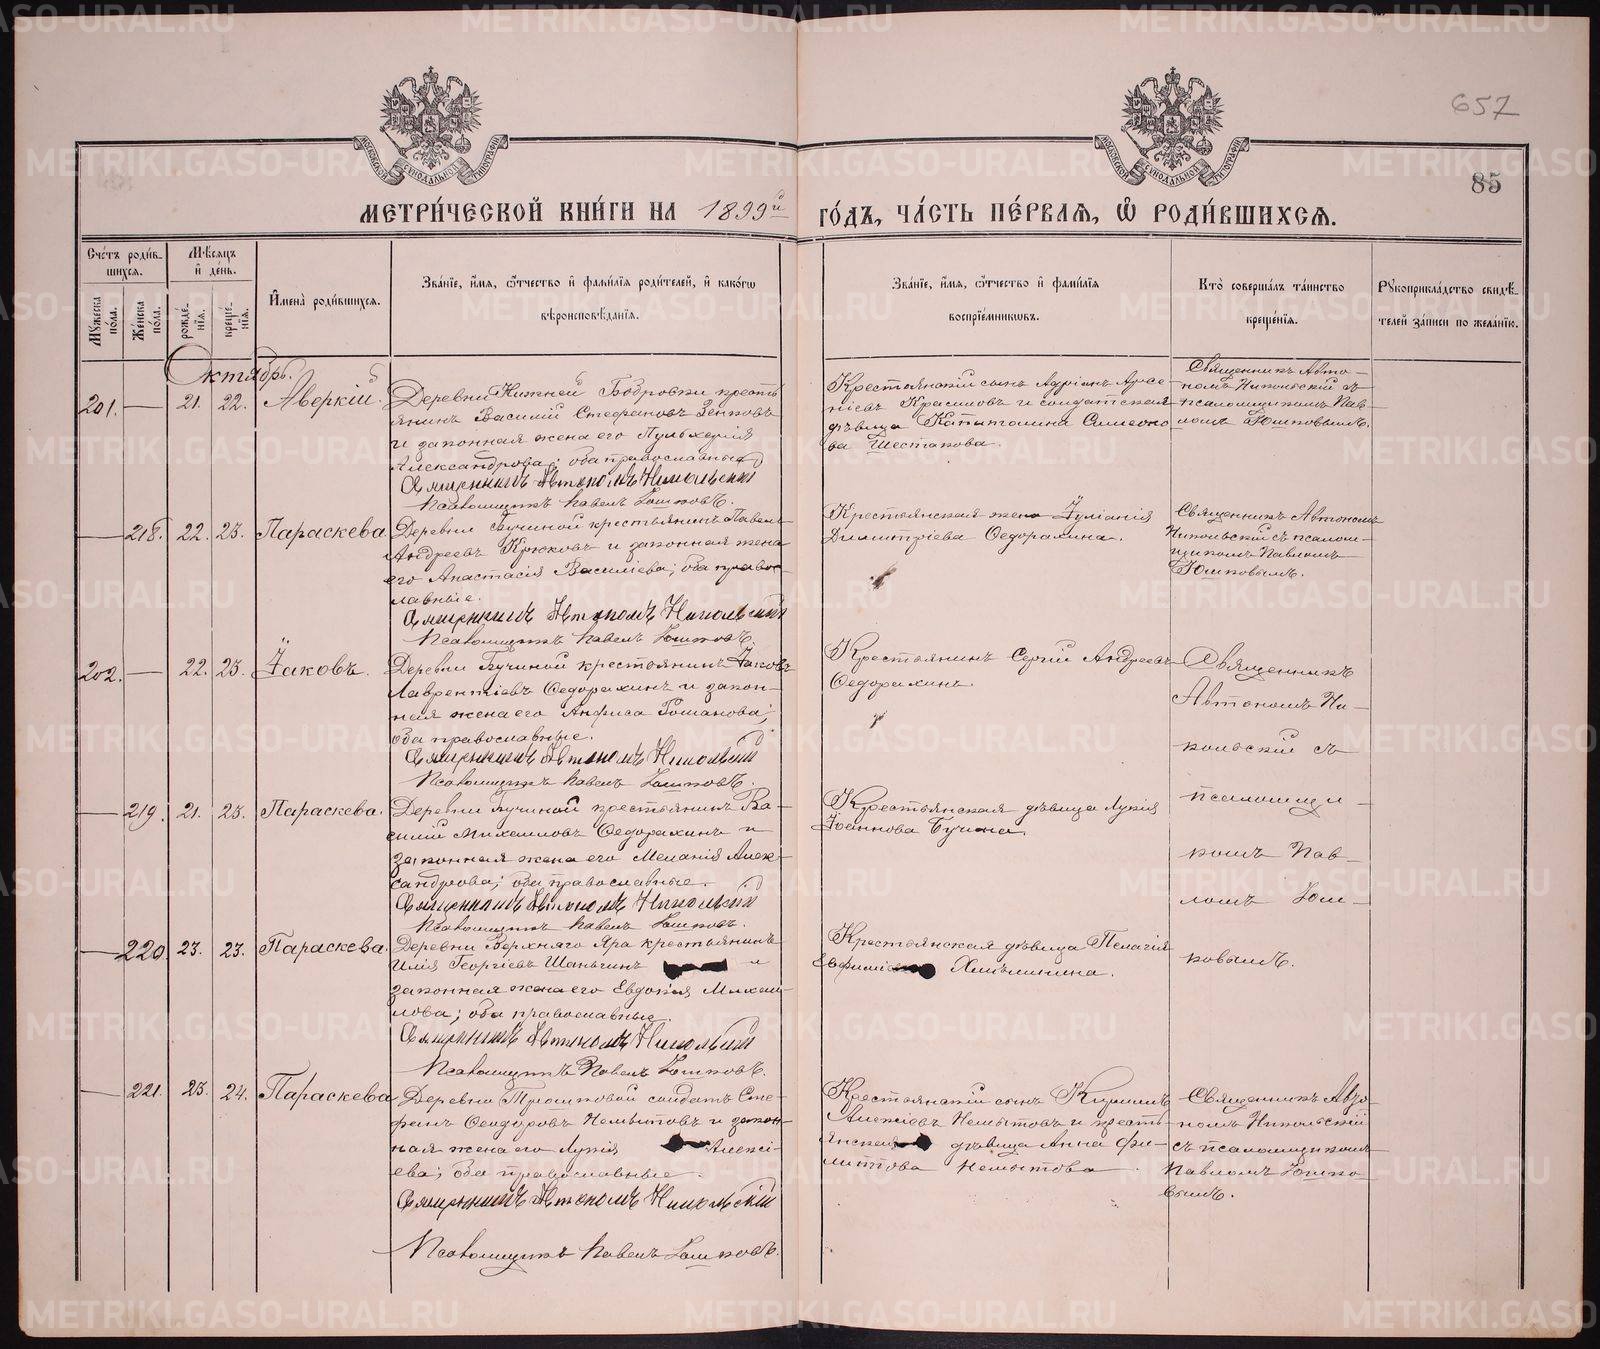 657
85
МЕТРИ́ЧЕСКОЙ КНИ́ГИ НА 1899й ГО́ДЪ, ЧА́СТЬ ПЕ́РВАѦ, Ѽ РОДИ́ВШИХСѦ.
Сче́тъ роди́в-
шихсѧ.
Мѣ́сѧцъ
и҆ де́нь.
Мꙋ́жеска по́ла.
Же́нска по́ла.
рожде́-
нїѧ.
креще́-
нїѧ.
И҆мена̀ роди́вшихсѧ.
Зва́нїе, и҆́мѧ, ѻ҆́тчество и҆ фами́лїѧ роди́телей, и҆ како́гѡ
вѣроисповѣ́данїѧ.
Зва́нїе, и҆́мѧ, ѻ҆́тчество и҆ фами́лїѧ
воспрїе́мникѡвъ.
Кто̀ соверша́лъ та́инство
креще́нїѧ.
Рꙋкоприкла́дство свидѣ́-
телей за́писи по жела́нїю.
Октябрь.
201. — 21. 22. Аверкій.
Деревни Нижней Бобровки кресть-
янинъ Василій Стефановъ Зенковъ
и законная жена его Пульхерія
Александрова; оба православные
Священникъ Автономъ Никольскій
Псаломщикъ Павелъ Юшковъ.
Крестьянскій сынъ Адріанъ Арсе-
ніевъ Красиловъ и солдатская
дѣвица Капитолина Симеоно-
ва Шестакова.
Священникъ Авто-
номъ Никольскій съ
псаломщикомъ Пав-
ломъ Юшковымъ.
— 218. 22. 23. Параскева
Деревни Бучиной крестьянинъ Павелъ
Андреевъ Крюковъ и законная жена
его Анастасія Василіева; оба право-
славные.
Священникъ Автономъ Никольскій
Псаломщикъ Павелъ Юшковъ.
Крестьянская жена Іуліанія
Димитріева Ѳедорахина.
Священникъ Автономъ
Никольскій съ псалом-
щикомъ Павломъ
Юшковымъ.
202. — 22. 23. Іаковъ.
Деревни Бучиной крестьянинъ Іаковъ
Лаврентіевъ Ѳедорахинъ и закон-
ная жена его Анфиса Романова;
оба православные.
Священникъ Автономъ Никольскій
Псаломщикъ Павелъ Юшковъ.
Крестьянинъ Сергій Андреевъ
Ѳедорахинъ.
Священникъ
Автономъ Ни-
кольскій съ
псаломщи-
комъ Пав-
ломъ Юш-
ковымъ.
— 219. 21. 23. Параскева.
Деревни Бучиной крестьянинъ Ва-
силій Михаиловъ Ѳедорахинъ и
законная жена его Меланія Алек-
сандрова; оба православные.
Священникъ Автономъ Никольскій
Псаломщикъ Павелъ Юшковъ.
Крестьянская дѣвица Лукія
Іоаннова Бучина.
— 220. 23. 23. Параскева.
Деревни Верхняго Яра крестьянинъ
Илія Георгіевъ Шаньгинъ и
законная жена его Евдокія Михаи-
лова; оба православные.
Священникъ Автономъ Никольскій
Псаломщикъ Павелъ Юшковъ.
Крестьянская дѣвица Пелагія
Хмѣлинина.
— 221. 23. 24. Параскева
Деревни солдатъ Сте-
фанъ Ѳеодоровъ Немытовъ и закон-
ная жена его Лукія Алексі-
ева; оба православные.
Священникъ Автономъ Никольскій
Псаломщикъ Павелъ Юшковъ.
Крестьянскій сынъ Кириллъ
Алексіевъ Немытовъ и кресть-
янская дѣвица Анна Фи-
липпова Немытова.
Священникъ Авто-
номъ Никольскій
съ псаломщикомъ
Павломъ Юшко-
вымъ.
METRIKI.GASO-URAL.RU